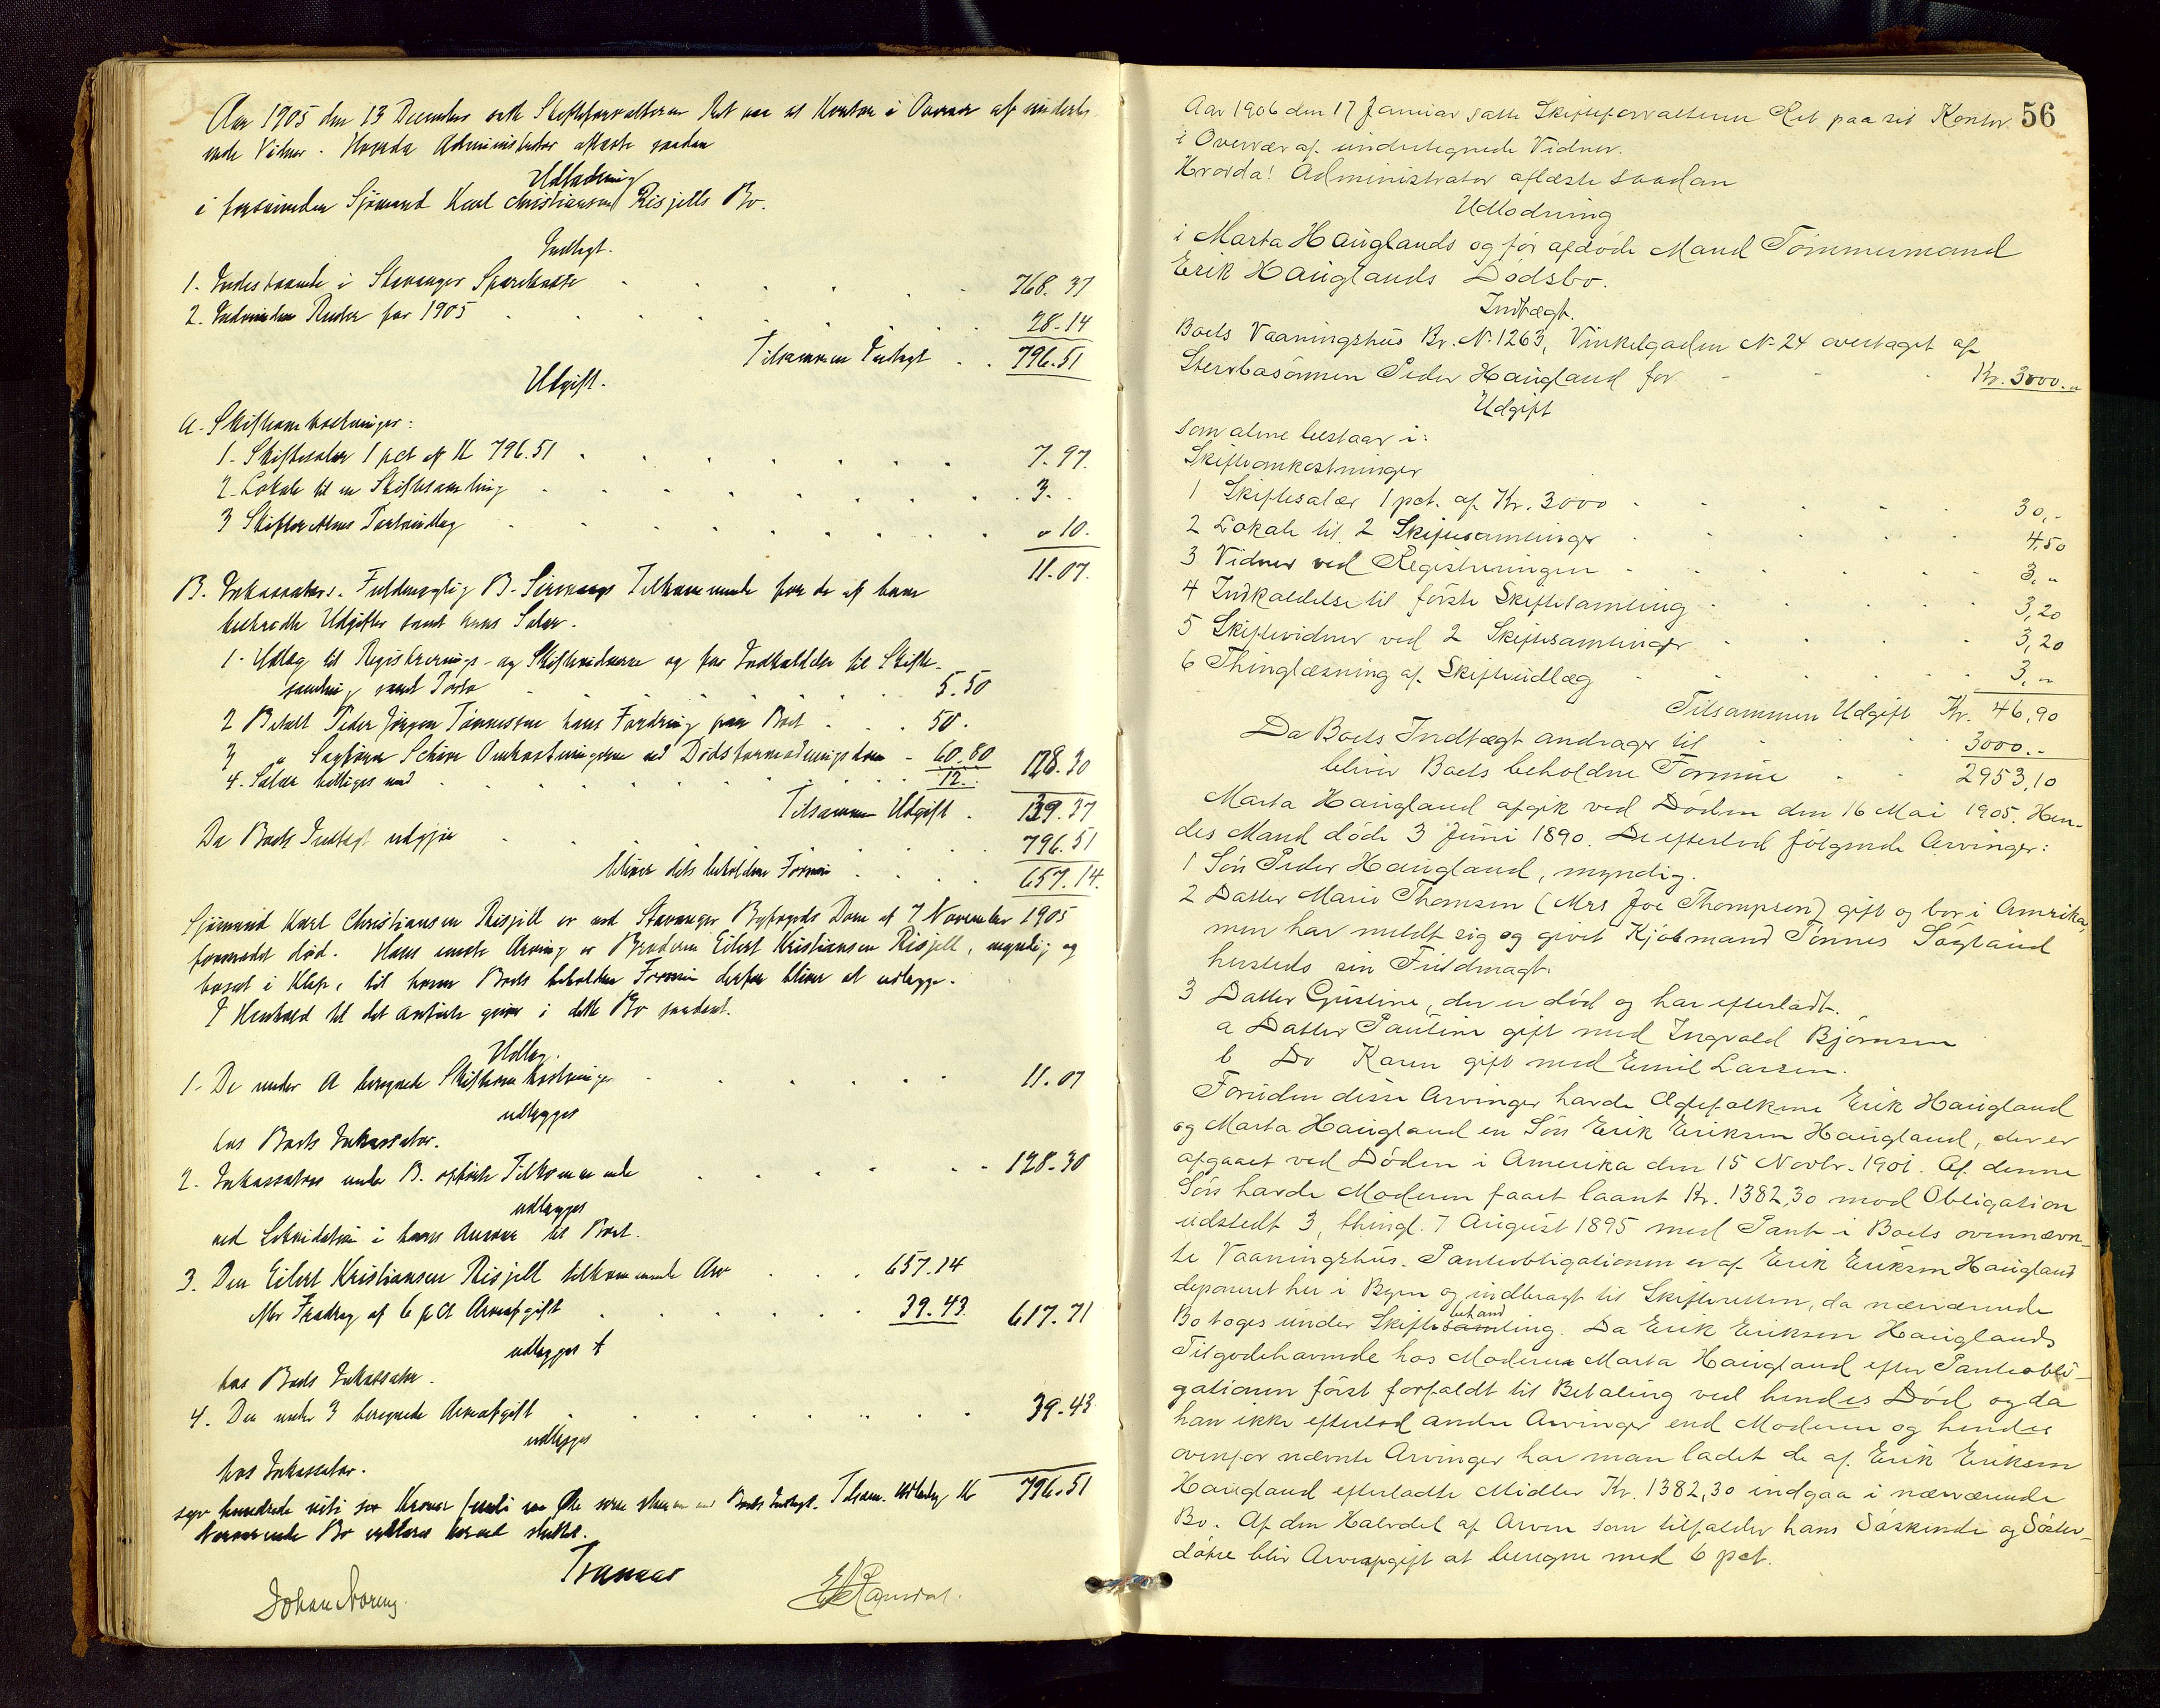 Aar 1905 den 13 December satte Skifteforvalteren Ret paa sit Kontor i Overvær af undertegnede
Vidner. Hvorda Administrator aflæste saadan
Udlodning
i forsvunden Sjømand Karl Christiansen Risjells Bo.
Indtægt.
1. Indestaaende i Stavanger Sparekasse . . . 768.37
2. Indvundne Renter for 1905 . . . 28.14
Tilsammen Indtægt . . 796.51
Udgift.
A. Skifteomkostninger:
1. Skiftesalær 1 pct af Kr 796.51 . . . 7.97.
2. Lokale til en Skiftesamling . . . 3. .
3 Skifterettens Portoudlæg . . . " 10.
11.07.
B. Inkassators Fuldmægtig B. Tilkommende for de af ham
bestridte Udgifter samt hans Salær.
1. Udlæg til Registrerings- og Skiftevidnerne og for Indkaldelse til Skifte-
samling samt Porto . . . 5.50
2 Betalt Peder Jørgen Tønnessen hans Fordring paa Boet . . . 50.
3 " Sagfører Schiøn Omkostningerne ved Dødsformodningsdom - 60.80
4. Salær billiges med . . . 12. 128.30
Tilsammen Udgift . 139.37
Da Boets Indtægt udgjør . . . 796.51
bliver dets beholdne Formue . . . 657.14.
Sjømand Karl Christiansen Risjell er ved Stavanger Byfogeds Dom af 7 November 1905
formodet død. Hans eneste Arving er Broderen Eilert Kristiansen Risjell, myndig og
bosat i Klep, til hvem Boets beholdne Formue derfor bliver at udlægge.
I Henhold til det anførte gives i dette Bo saadant.
Udlæg.
1. De under A beregnede Skifteomkostninger . . . 11.07
udlægges
hos Boets Inkassator.
2. Inkassators under B. opførte Tilkommende . . . 128.30
udlægges
ved Likvidation i hans Ansvar til Boet.
3. Den Eilert Kristiansen Risjell tilkommende Arv . . . 657.14
efter Fradrag af 6 pCt Arveafgift . . . 39.43. 617.71
udlægges
hos Boets Inkassator.
4. Den under 3 beregnede Arveafgift . . . 39.43
udlægges
hos Inkassator.
syv hundrede niti sex Kroner femti en Øre som stemmer med Boets Indtægt. Tilsam. Udlæg Kr 796.51
Nærværende Bo erklæres herved sluttet.
Johan Noreng.
56
Aar 1906 den 17 Januar satte Skifteforvalteren Ret paa sit Kontor
i Overvær af undertegnede Vidner.
Hvorda! Administrator aflæste saadan
Udlodning
i Marta Hauglands og før afdøde Mand Tømmermand
Erik Hauglands Dødsbo.
Indtægt.
Boets Vaaningshus Br. № 1263, Vinkelgaden № 24 overtaget af
Stervbosønnen Peder Haugland for - - - Kr. 3000. "
Udgift
som alene bestaar i:
Skifteomkostninger
1 Skiftesalær 1 pct. af Kr. 3000 . . . 30,-
2 Lokale til 2 Skiftesamlinger . . . 4,50
3 Vidner ved Registreringen . . . 3. "
4 Indkaldelse til første Skiftesamling . . . 3,20
5 Skiftevidner ved 2 Skiftesamlinger . . . 3,20
6 Thinglæsning af Skifteudlæg . . . 3. "
Tilsammen Udgift Kr. 46,90
Da Boets Indtægt andrager til . . . 3000.-
bliver Boets beholdne Formue . . . 2953,10
Marta Haugland afgik ved Døden den 16 Mai 1905. Hen-
des Mand døde 3 Juni 1890. De efterlod følgende Arvinger:
1 Søn Peder Haugland, myndig.
2 Datter Marie Thomsen (Mrs Joe Thompson) gift og bor i Amrika,
men har meldt sig og givet Kjøbmand Tønnes Søgland
hersteds sin Fuldmagt.
3 Datter Gustine, der er død og har efterladt.
a Datter Pauline gift med Ingvald Bjørnsen
b Do Karen gift med Emil Larsen.
Foruden disse Arvinger havde Ægtefolkene Erik Haugland
og Marta Haugland en Søn Erik Eriksen Haugland, der er
afgaaet ved Døden i Amerika den 15 Novbr. 1901. Af denne
Søn havde Moderen faaet laant Kr. 1382,30 mod Obligation
udstedt 3, thingl. 7 August 1895 med Pant i Boets ovennævn-
te Vaaningshus. Panteobligationen er af Erik Eriksen Haugland
deponeret her i Byen og indbragt til Skifteretten, da nærværende
Bo toges under Skiftesamling behand. Da Erik Eriksen Hauglands
Tilgodehavende hos Moderen Marta Haugland efter Panteobli-
gationen først forfaldt til Betaling ved hendes Død og da
han ikke efterlod andre Arvinger end Moderen og hendes
ovenfor nævnte Arvinger har man ladet de af Erik Eriksen
Haugland efterladte Midler Kr. 1382,30 indgaa i nærværende
Bo. Af den Halvdel af Arven som tilfalder hans Søskende og Søster-
døtre blir Arveafgift at beregne med 6 pct.